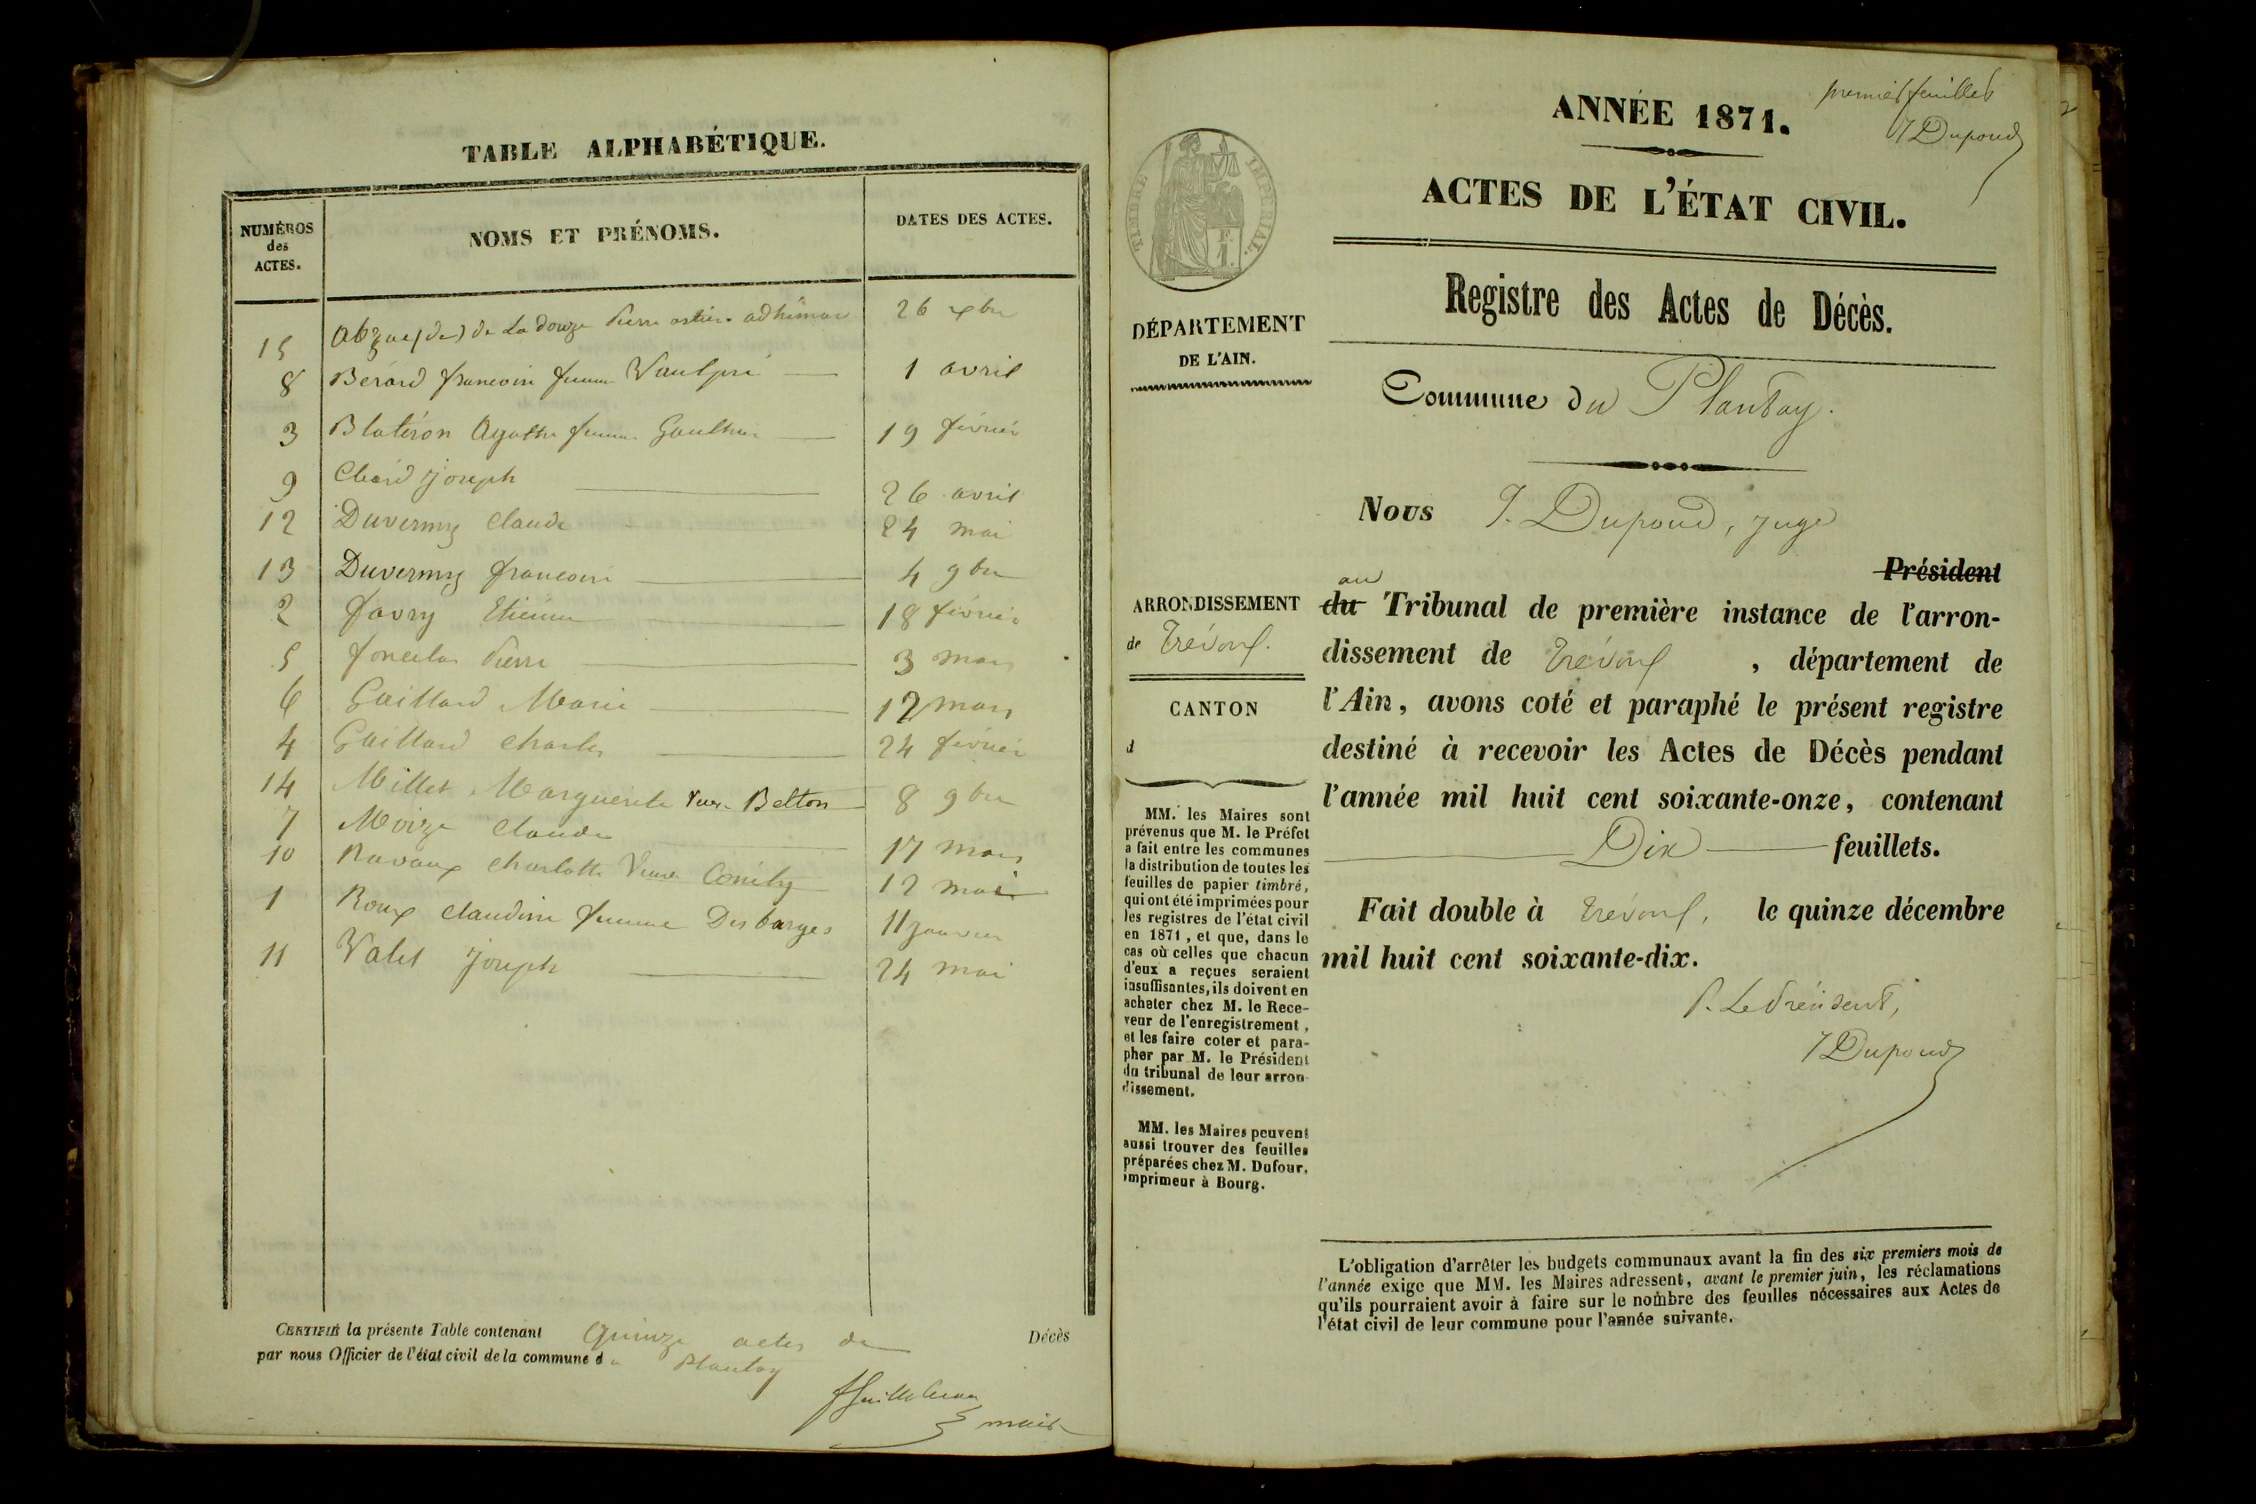 TABLE ALPHABÉTIQUE.
NUMÉROS
des
ACTES.
NOMS ET PRÉNOMS.
DATES DES ACTES.
15 Abzac (de) de La douze Pierre adhémar 26 xbre
8 Berard francoise femme Vaulpré 1 avril
3 Blateron Agathe femme Gauthier 19 février
9 Joseph 26 avril
12 Duverney Claude 24 mai
13 Duverney francoise 4 9bre
2 favry Etienne 18 février
5 Pierre 3 mars
6 Gaillard Marie 12 mars
4 Gaillard Charles 24 février
14 Millet Marguerite Veuve Belton 8 9bre
7 Moize Claude 17 mars
10 Ravaux Charlotte Veuve 12 mai
1 Roux Claudine femme Desbarges 11 janvier
11 Valet Joseph 24 mai
CERTIFIÉ la présente Table contenant Quinze actes de Décès
par nous Officier de l'état civil de la commune d Plantay
maire
premier feuillet
JDupond
2
ANNÉE 1871.
ACTES DE L'ÉTAT CIVIL.
Registre des Actes de Décès.
TIMBRE IMPERIAL.
F.
1.
DÉPARTEMENT
DE L'AIN.
Commune du Plantay.
Nous J. Dupond, juge
Président
au
du Tribunal de première instance de l'arron-
dissement de Trévoux, département de
l'Ain, avons coté et paraphé le présent registre
destiné à recevoir les Actes de Décès pendant
l'année mil huit cent soixante-onze, contenant
Dix feuillets.
Fait double à Trévoux, le quinze décembre
mil huit cent soixante-dix.
P. Le Président,
JDupond
ARRONDISSEMENT
de Trévoux.
CANTON
d
MM. les Maires sont
prévenus que M. le Préfet
a fait entre les communes
la distribution de toutes les
feuilles de papier timbré,
qui ont été imprimées pour
les registres de l'état civil
en 1871, et que, dans le
cas où celles que chacun
d'eux a reçues seraient
insuffisantes, ils doivent en
acheter chez M. le Rece-
veur de l'enregistrement,
et les faire coter et para-
pher par M. le Président
du tribunal de leur arron-
dissement.
MM. les Maires peuvent
aussi trouver des feuilles
préparées chez M. Dufour,
imprimeur à Bourg.
L'obligation d'arrêter les budgets communaux avant la fin des six premiers mois de
l'année exige que MM. les Maires adressent, avant le premier juin, les réclamations
qu'ils pourraient avoir à faire sur le nombre des feuilles nécessaires aux Actes de
l'état civil de leur commune pour l'année suivante.